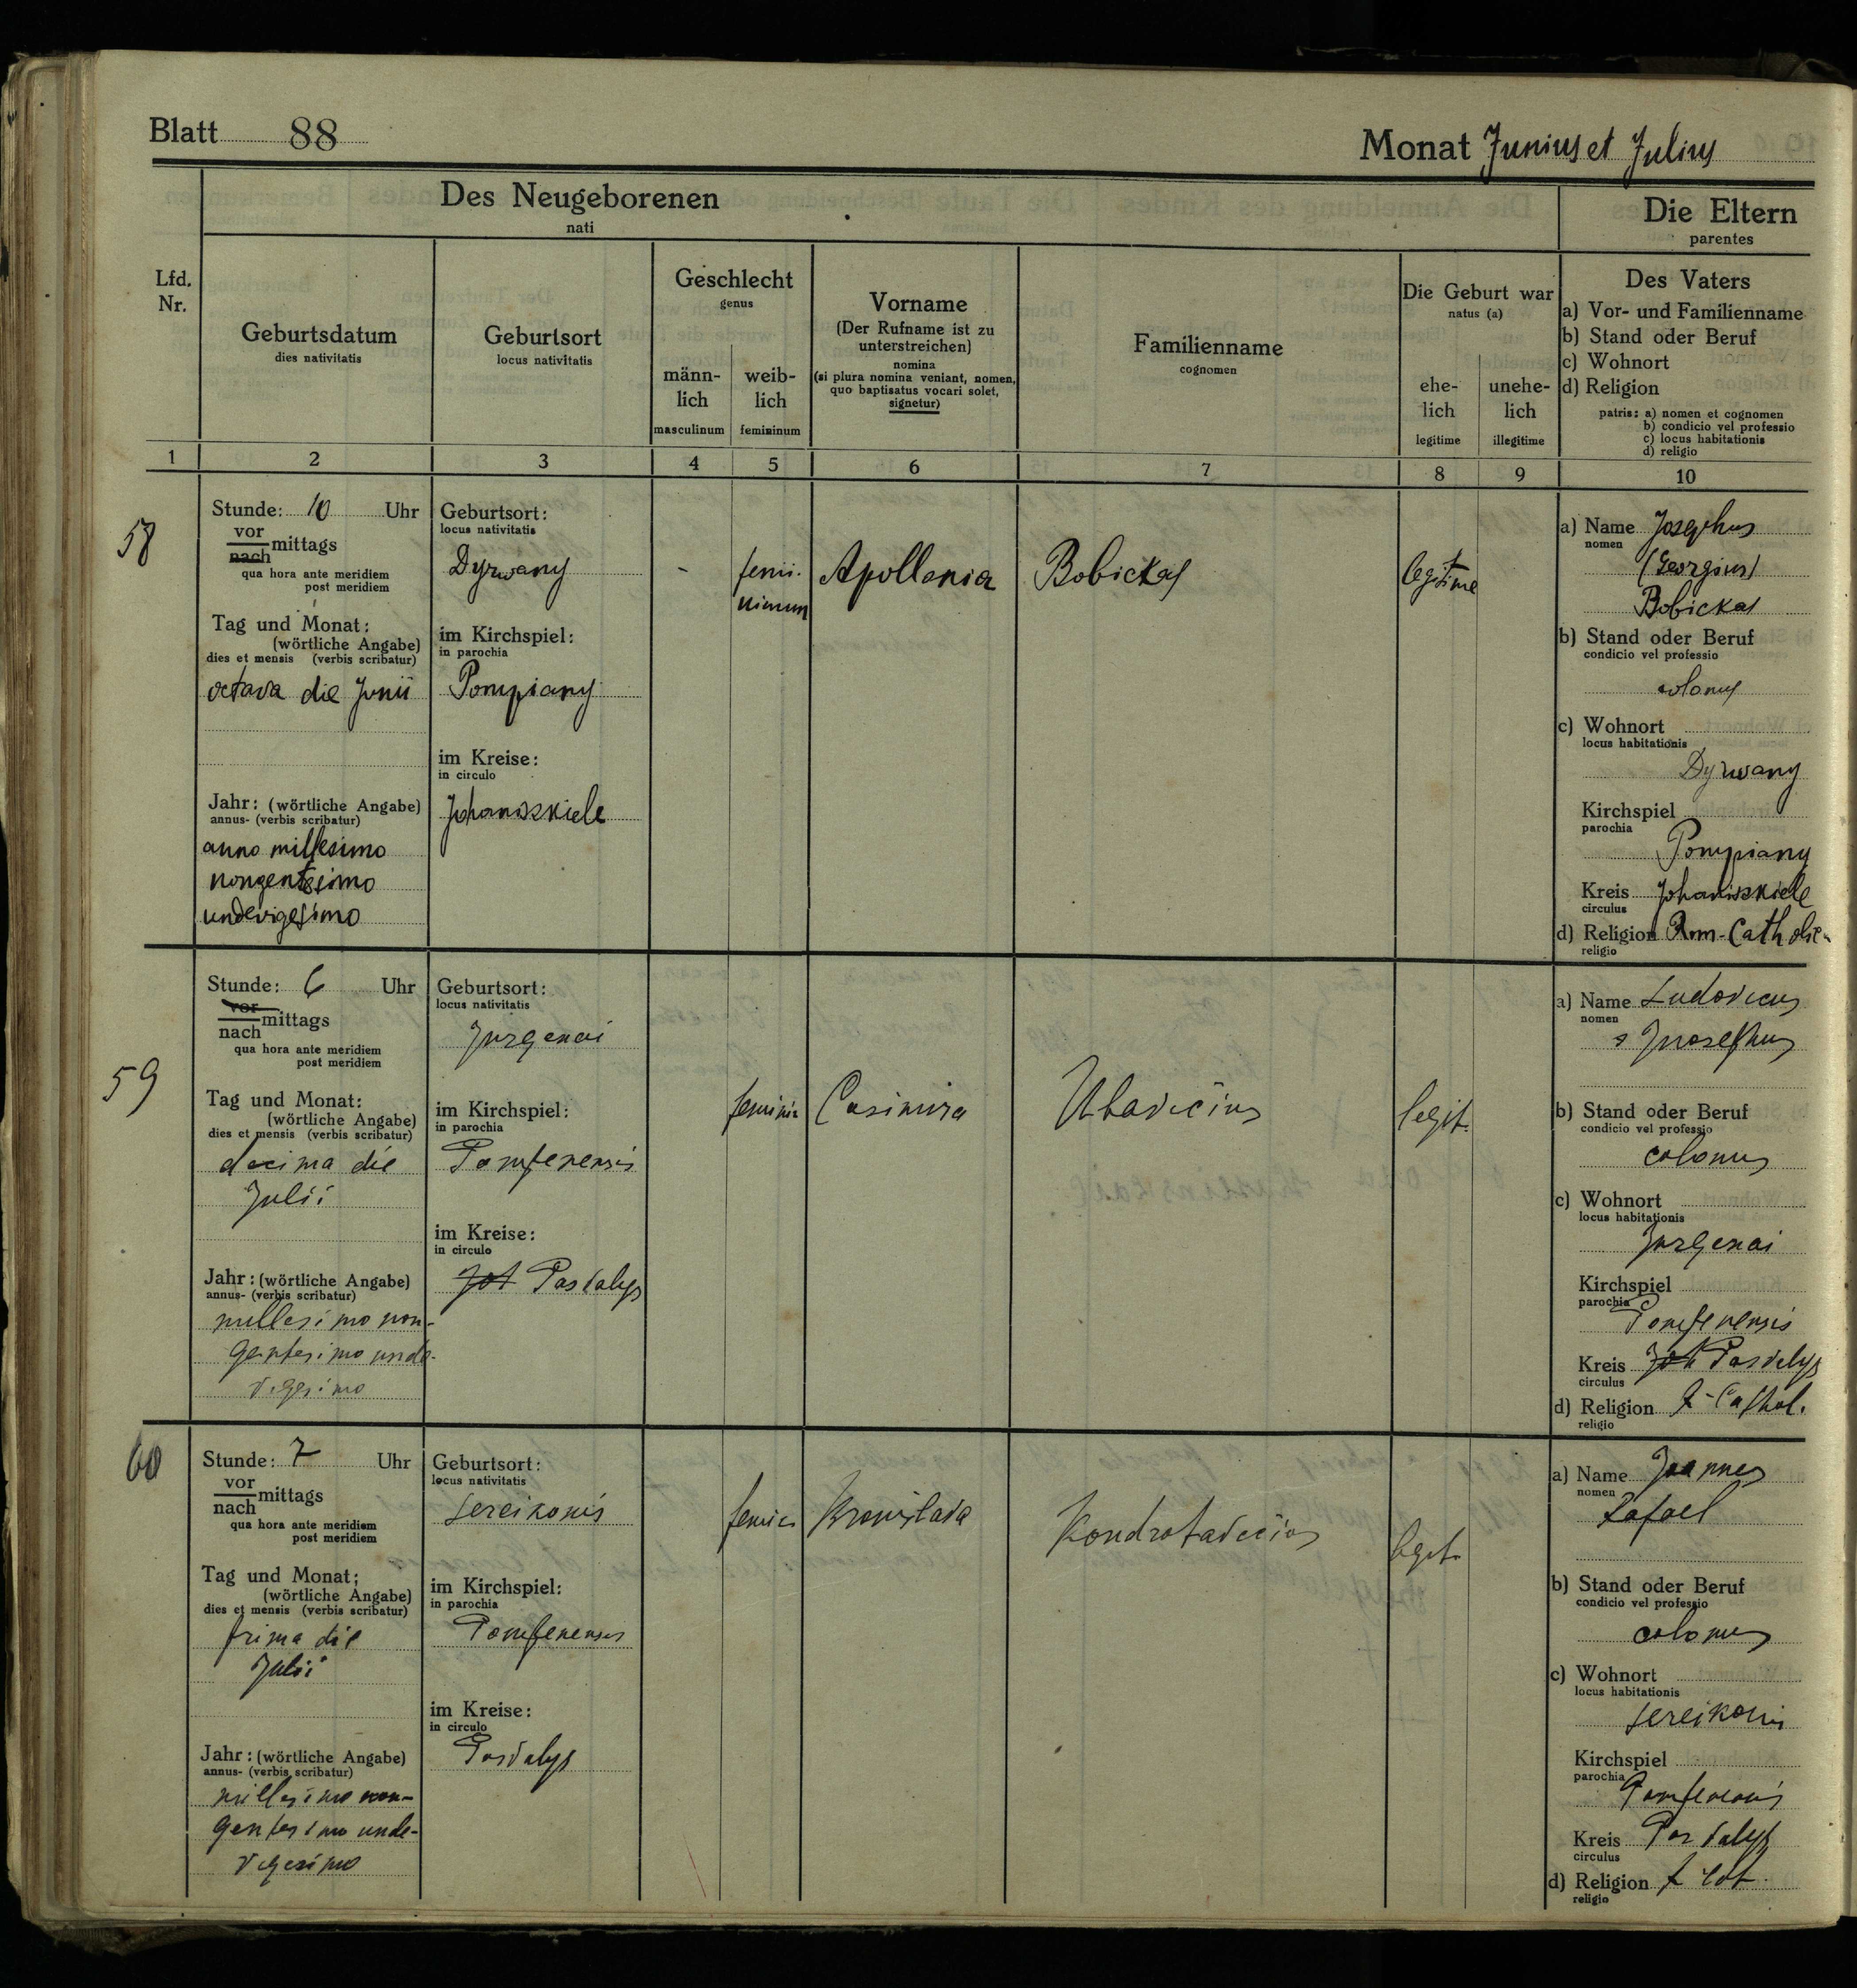 Blatt 88
Monat Junius et Julius
Des Neugeborenen
nati
Die Eltern
parentes
Lfd.
Nr.
Geburtsdatum
dies nativitatis
Geburtsort
locus nativitatis
Geschlecht
genus
männ-
lich
masculinum
weib-
lich
femininum
Vorname
(Der Rufname ist zu
unterstreichen)
nomina
(si plura nomina veniant, nomen,
quo baptisatus vocari solet,
signetur)
Familienname
cognomen
Die Geburt war
natus (a)
ehe-
lich
legitime
unehe-
lich
illegitime
Des Vaters
a) Vor- und Familienname
b) Stand oder Beruf
c) Wohnort
d) Religion
patris: a) nomen et cognomen
b) condicio vel professio
c) locus habitationis
d) religio
1 2 3 4 5 6 7 8 9 10
58
Stunde: 10 Uhr
vor
nach mittags
qua hora ante meridiem
post meridiem
Tag und Monat:
(wörtliche Angabe)
dies et mensis (verbis scribatur)
octava die Junii
Jahr: (wörtliche Angabe)
annus- (verbis scribatur)
anno millesimo
nongentesimo
undevigesimo
Geburtsort:
locus nativitatis
Dyrwany
im Kirchspiel:
in parochia
Pompiany
im Kreise:
in circulo
Johaniszkiele
-
femi-
ninum
Apollonia
Bobickas
legitime
a) Name Josephus
nomen
(Georgius)
Bobickas
b) Stand oder Beruf
condicio vel professio
colonus
c) Wohnort
locus habitationis
Dyrwany
Kirchspiel
parochia
Pompiany
Kreis Johaniszkiele
circulus
d) Religion Rom-Catholic-
religio
59
Stunde: 6 Uhr
vor
nach mittags
qua hora ante meridiem
post meridiem
Tag und Monat:
(wörtliche Angabe)
dies et mensis (verbis scribatur)
decima die
Julii
Jahr: (wörtliche Angabe)
annus- (verbis scribatur)
millesimo non-
gentesimo unde-
vigesimo
Geburtsort:
locus nativitatis
Jurgenai
im Kirchspiel:
in parochia
Pompenensis
im Kreise:
in circulo
Joh Pasvalys
feminin
Casimira
Ubavičius
legit.
a) Name Ludovicus
nomen
s Juosephus
b) Stand oder Beruf
condicio vel professio
colonus
c) Wohnort
locus habitationis
Jurgenai
Kirchspiel
parochia
Pompenensis
Kreis Joh Pasvalys
circulus
d) Religion r-Cathol.
religio
60
Stunde: 7 Uhr
vor
nach mittags
qua hora ante meridiem
post meridiem
Tag und Monat:
(wörtliche Angabe)
dies et mensis (verbis scribatur)
prima die
Julii
Jahr: (wörtliche Angabe)
annus- (verbis scribatur)
millesimo non-
gentesimo unde-
vigesimo
Geburtsort:
locus nativitatis
Sereikonis
im Kirchspiel:
in parochia
Pompenensis
im Kreise:
in circulo
Pasvalys
femin
Bronislava
Kondrotavičius
legit.
a) Name Joannes
nomen
Rafael
b) Stand oder Beruf
condicio vel professio
colonus
c) Wohnort
locus habitationis
Sereikonis
Kirchspiel
parochia
Pompenensis
Kreis Pasvalys
circulus
d) Religion r cat.
religio